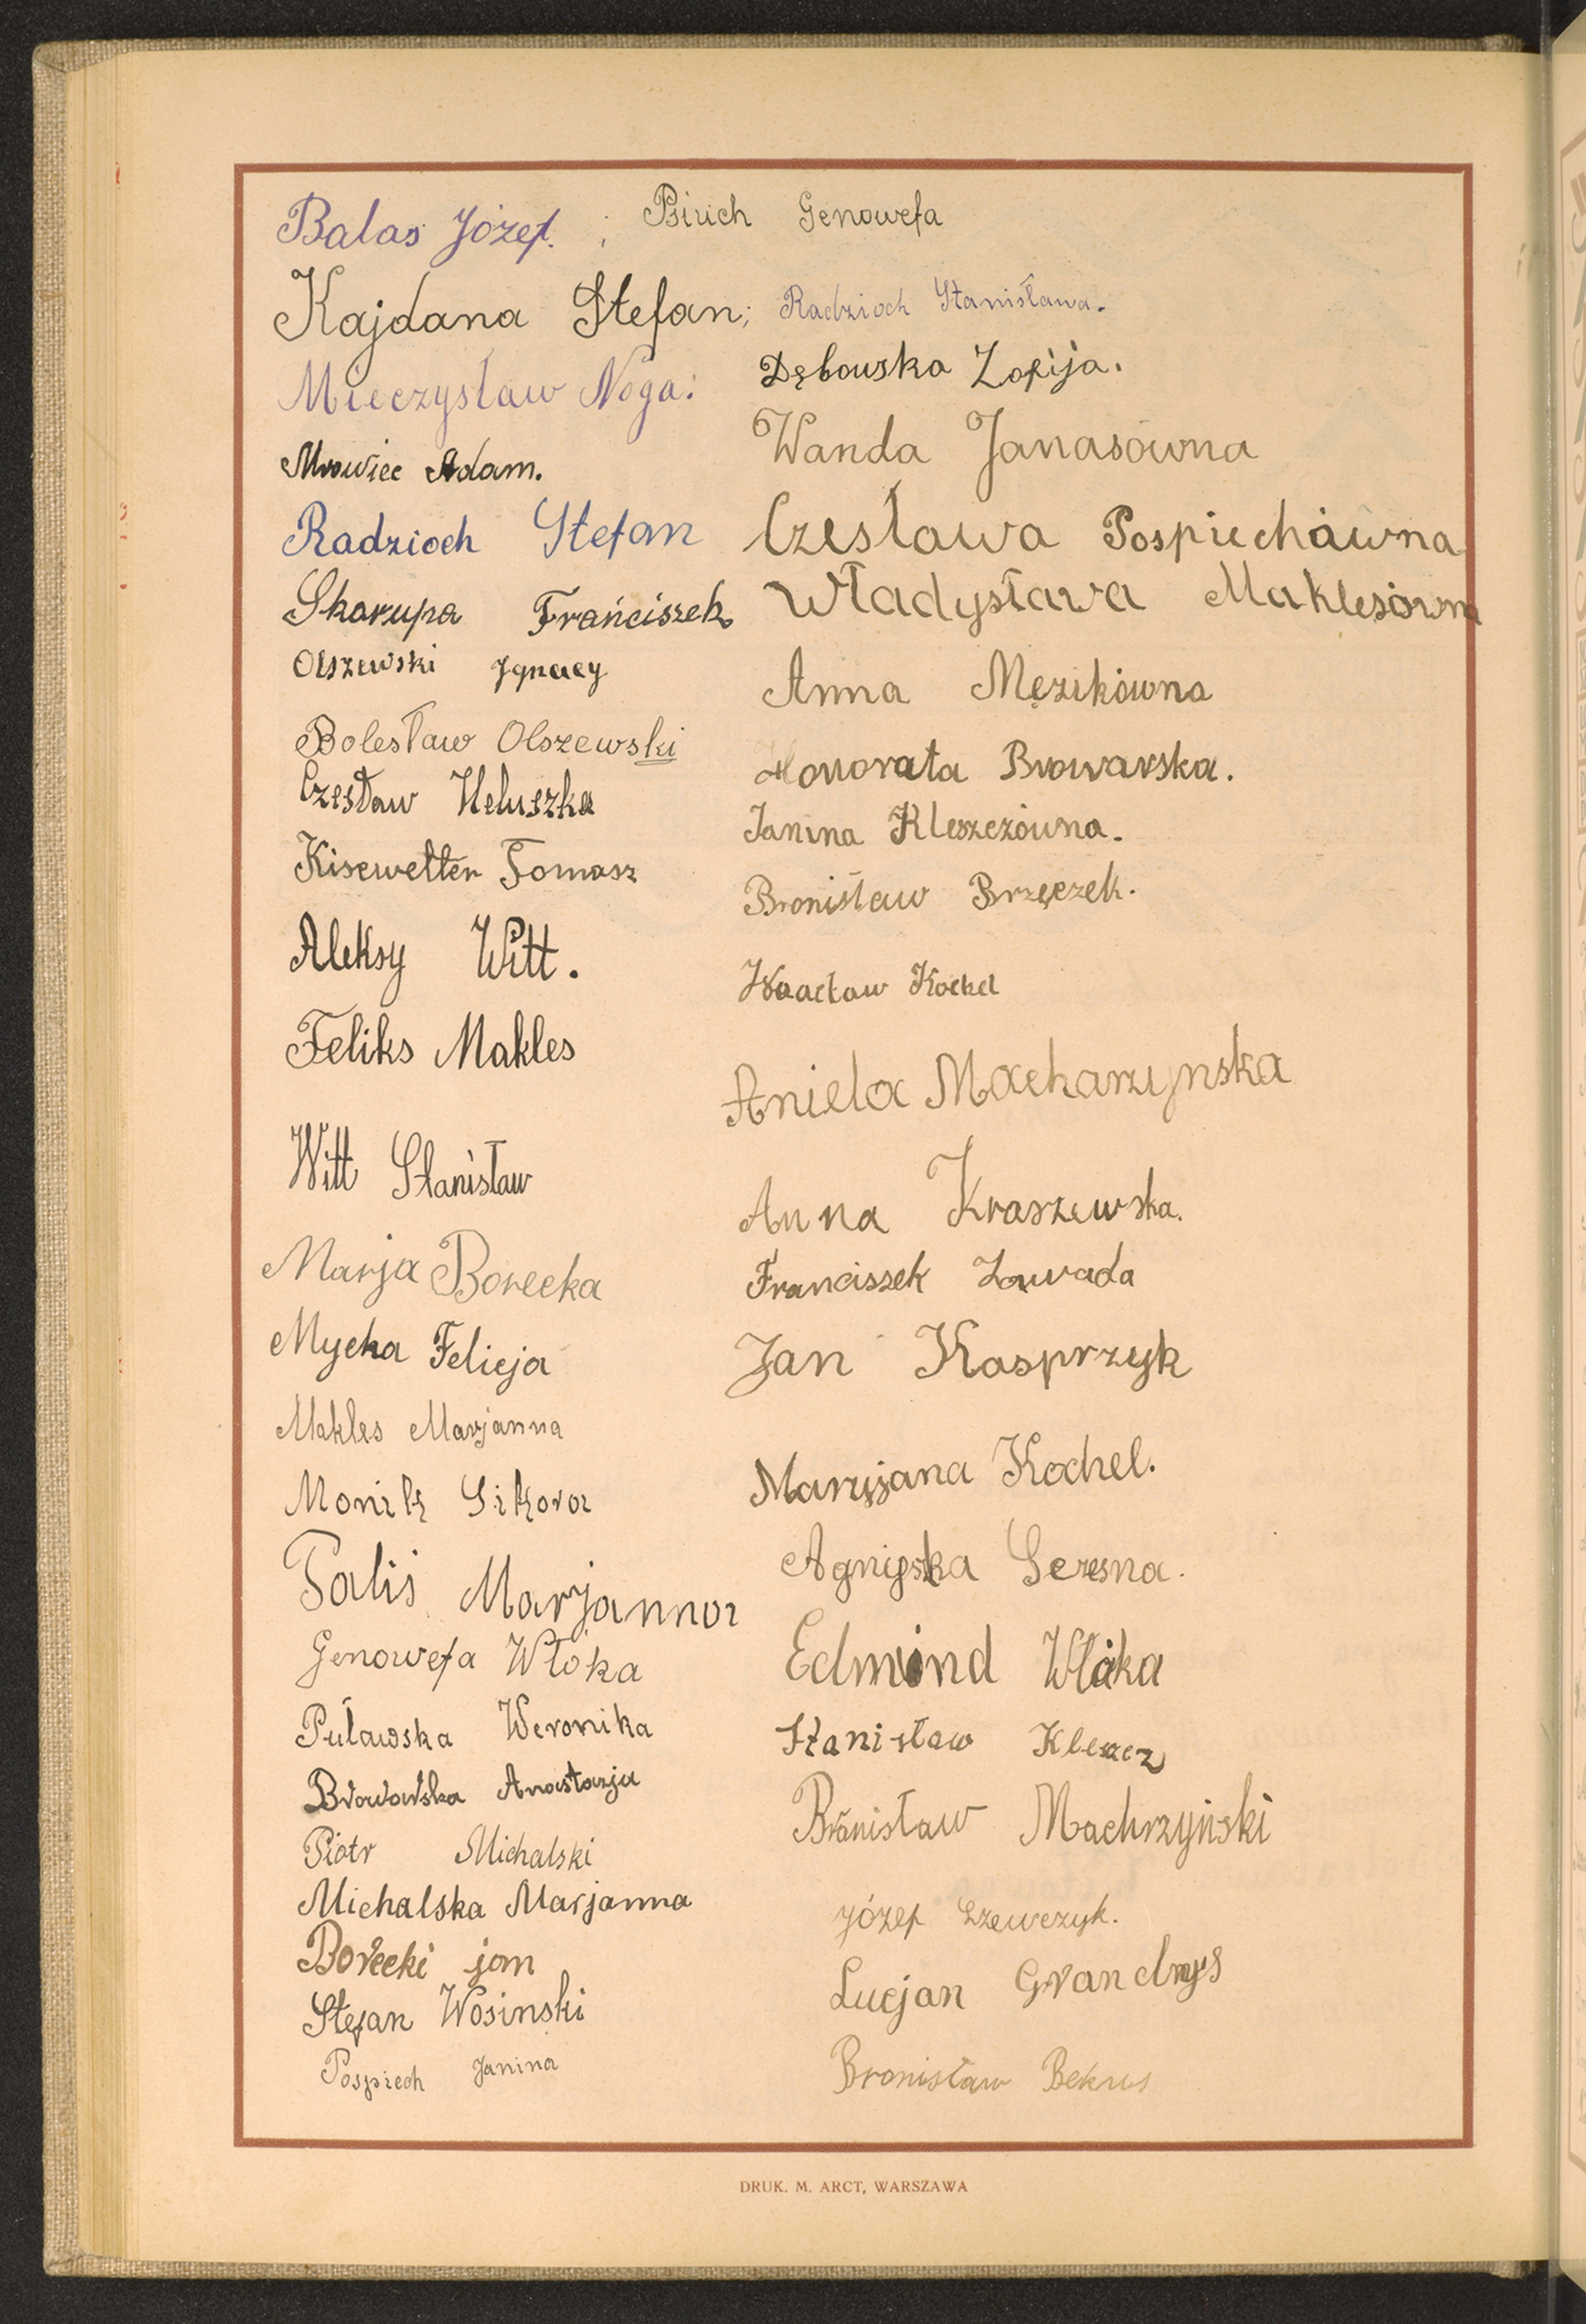 Balas Józef. ; Psiuch Genowefa
Kajdana Stefan; Radzioch Stanisława.
Mieczysław Noga. Dębowska Zofija.
Mrowiec Adam. Wanda Janasówna
Radzioch Stefan Czesława Pospiechówna
Skorupa Franciszek Władysława Maklesówna
Olszewski Ignacy Anna Męzikówna
Bolesław Olszewski Honorata Browarska.
Czesław Heluszka Janina Kleszczówna.
Kisewetter Tomasz Bronisław Brzęczek.
Aleksy Witt. Wacław Kochel
Feliks Makles Aniela Macharzynska
Witt Stanisław Anna Kraszewska.
Marja Borecka Franciszek Zawada
Mycka Felicja Jan Kasprzyk
Makles Marjanna Maryjana Kochel.
Monik Sikora Agniska
Palis Marjanna Edmund Wloka
Genowefa Wloka Stanisław Kleszcz
Puławska Weronika Bronisław Machrzyński
Browarska Anastazja Józef Szewczyk.
Piotr Michalski Lucjan
Michalska Marjanna Bronisław Bekus
Borecki jan
Stefan Wosinski
Pospiech Janina
DRUK. M. ARCT, WARSZAWA